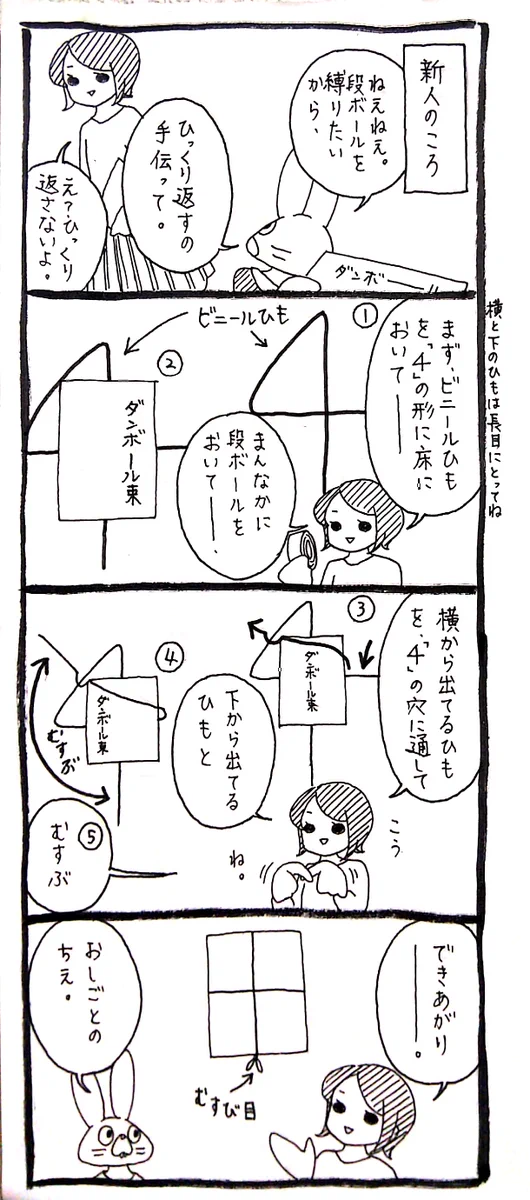 新人のころ
ねえねえ。
段ボールを
縛りたい
から、
ひっくり返すの
手伝って。
え？ひっくり
返さないよ。
ダンボー
横と下のひもは長目にとってね
まず、ビニールひも
を、「4」の形に床に
おいて——
①
ビニールひも
②
ダンボール束
まんなかに
段ボールを
おいて——、
横から出てるひも
を、「4」の穴に通して
③
ダンボール束
④
ダンボール束
むすぶ
下から出てる
ひもと
こう
ね。
⑤
むすぶ
できあがり
——。
むすび目
おしごとの
ちえ。